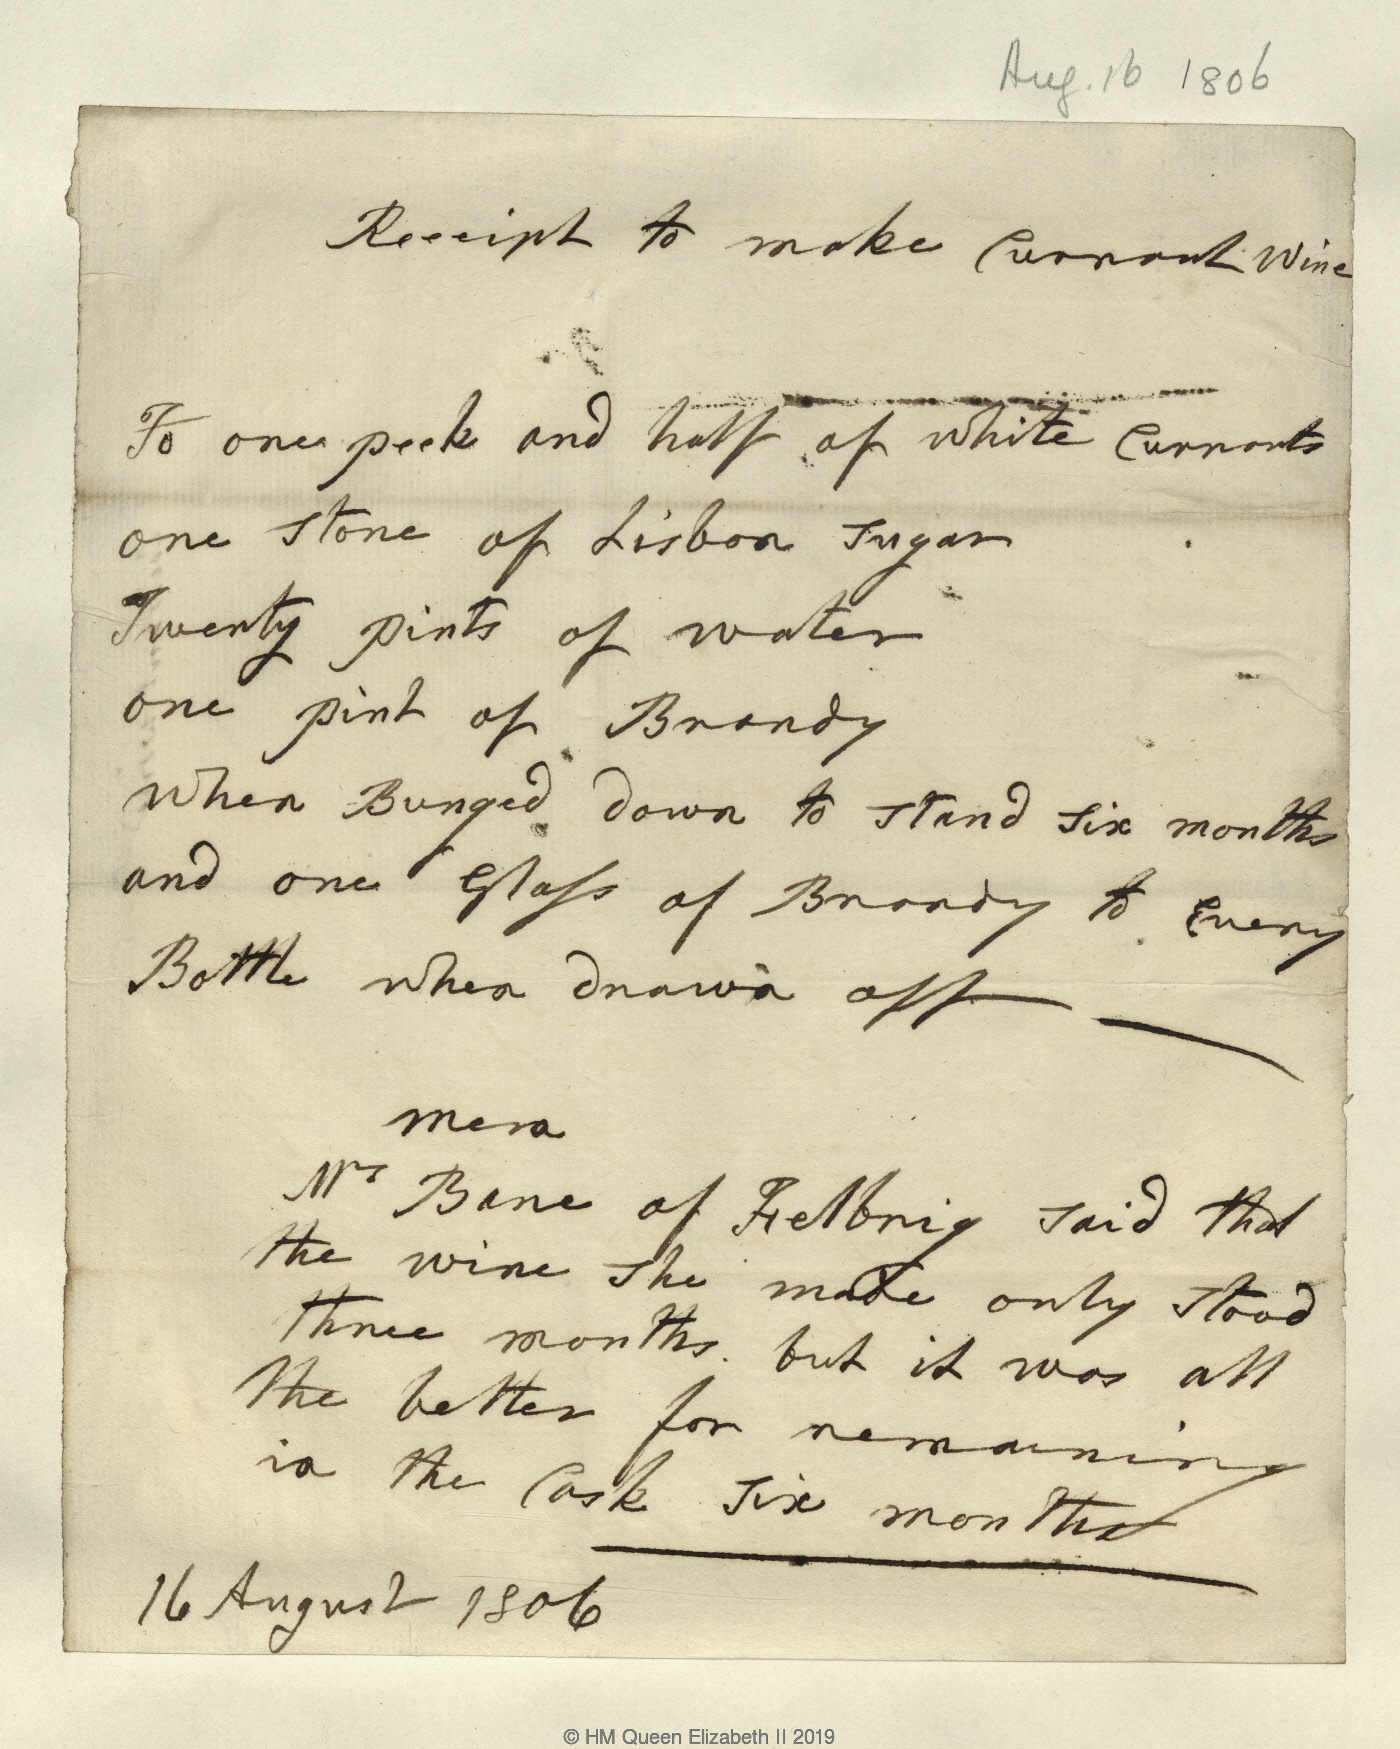 Aug. 16 1806
Receipt to make Currant Wine
To one peck and half of white Currants
one stone of Lisbon sugar
Twenty pints of water
one pint of Brandy
when Bunged down to stand six months
and one Glass of Brandy to Every
Bottle when drawn off
mem
Mrs Bane of Felbrig said that
the wine she made only stood
three months. but it was all
the better for remaining
in the Cask six months
16 August 1806
© HM Queen Elizabeth II 2019